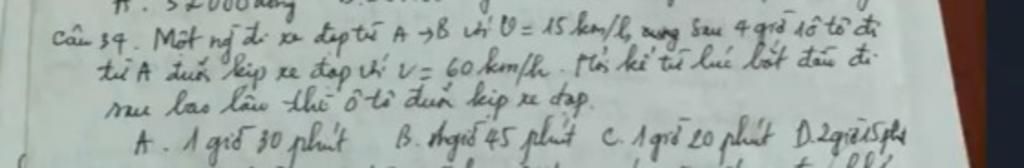 A. 52000 đồng
Câu 34. Một ng đi xe đạp từ A → B với v = 15 km/h, sau 4 giờ 1 ô tô đi
từ A đuổi kịp xe đạp với v = 60 km/h. Hỏi kể từ lúc bắt đầu đi
sau bao lâu thì ô tô đuổi kịp xe đạp.
A. 1 giờ 30 phút B. 1 giờ 45 phút C. 1 giờ 20 phút D. 2 giờ 15 phú